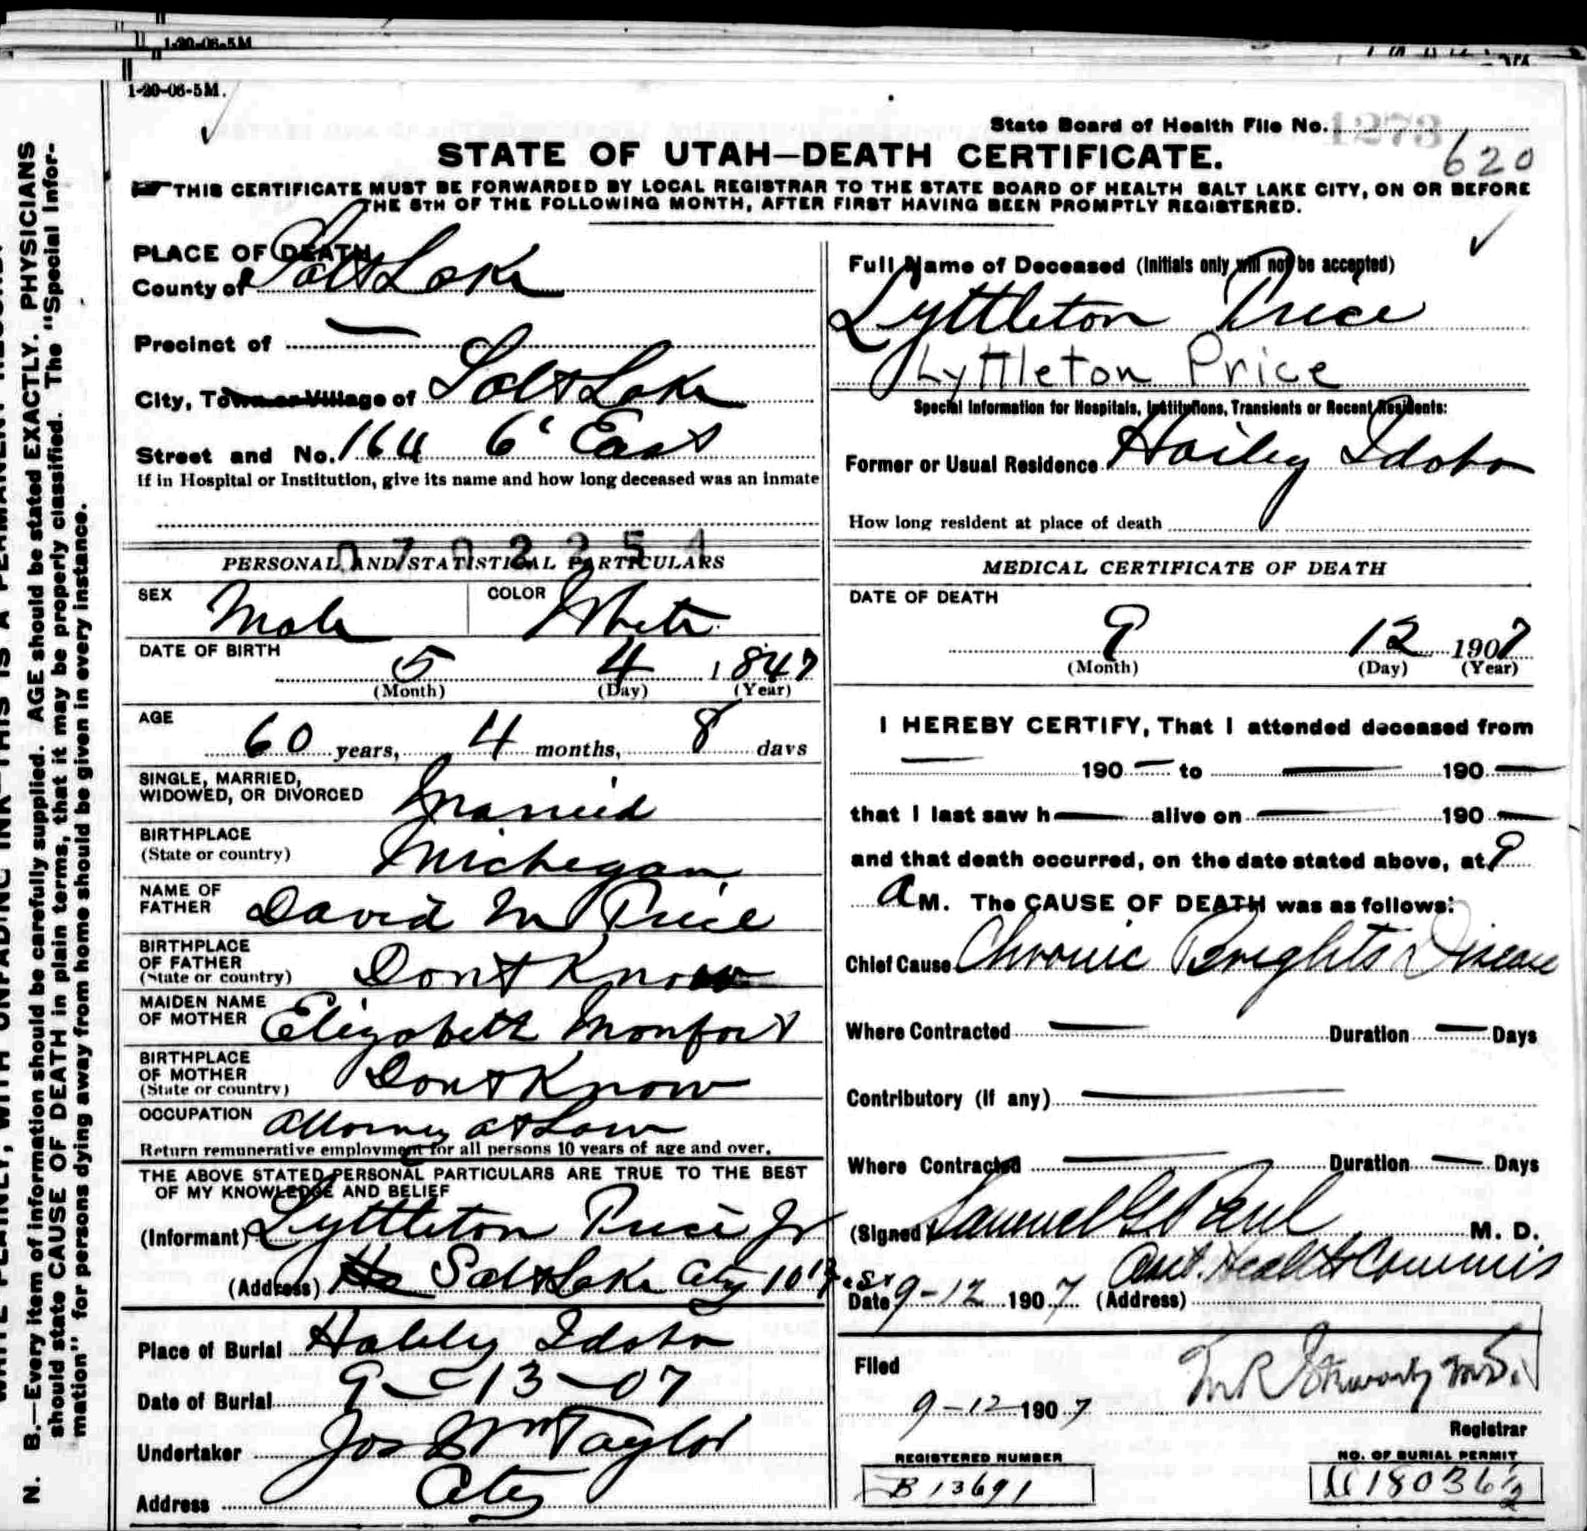 1-20-06-5M
1-20-06-5M.
State Board of Health File No. 1273
620
STATE OF UTAH—DEATH CERTIFICATE.
THIS CERTIFICATE MUST BE FORWARDED BY LOCAL REGISTRAR TO THE STATE BOARD OF HEALTH SALT LAKE CITY, ON OR BEFORE
THE 5TH OF THE FOLLOWING MONTH, AFTER FIRST HAVING BEEN PROMPTLY REGISTERED.
PLACE OF DEATH
County of Salt Lake
Precinct of —
City, Town or Village of Salt Lake
Street and No. 164 6' East
If in Hospital or Institution, give its name and how long deceased was an inmate
0702254
PERSONAL AND STATISTICAL PARTICULARS
SEX Male COLOR White
DATE OF BIRTH 5 4 1847
(Month) (Day) (Year)
AGE
60 years, 4 months, 8 days
SINGLE, MARRIED,
WIDOWED, OR DIVORCED Married
BIRTHPLACE
(State or country) Michegan
NAME OF
FATHER David M Price
BIRTHPLACE
OF FATHER
(State or country) Dont Know
MAIDEN NAME
OF MOTHER Elizabeth Monfort
BIRTHPLACE
OF MOTHER
(State or country) Dont Know
OCCUPATION Attorney at Law
Return remunerative employment for all persons 10 years of age and over.
THE ABOVE STATED PERSONAL PARTICULARS ARE TRUE TO THE BEST
OF MY KNOWLEDGE AND BELIEF
(Informant) Lyttleton Price Jr
(Address) Salt Lake City
Place of Burial Hailey Idaho
Date of Burial 9-13-07
Undertaker Jos Wm Taylor
Address City
Full Name of Deceased (Initials only will not be accepted)
Lyttleton Price
Lyttleton Price
Special Information for Hospitals, Institutions, Transients or Recent Residents:
Former or Usual Residence Hailey Idaho
How long resident at place of death
MEDICAL CERTIFICATE OF DEATH
DATE OF DEATH
9 12 1907
(Month) (Day) (Year)
I HEREBY CERTIFY, That I attended deceased from
— 190 — to — 190 —
that I last saw h — alive on — 190 —
and that death occurred, on the date stated above, at 9
a M. The CAUSE OF DEATH was as follows:
Chief Cause Chronic Brights Disease
Where Contracted — Duration — Days
Contributory (If any) —
Where Contracted — Duration — Days
(Signed Samuel G Paul M. D.
Asst. Health Commis
Date 9-12 1907 (Address)
Filed
9-12-1907
Registrar
REGISTERED NUMBER
B 13691
NO. OF BURIAL PERMIT
N. B.—Every item of information should be carefully supplied. AGE should be stated EXACTLY. PHYSICIANS
should state CAUSE OF DEATH in plain terms, that it may be properly classified. The "Special Infor-
mation" for persons dying away from home should be given in every instance.